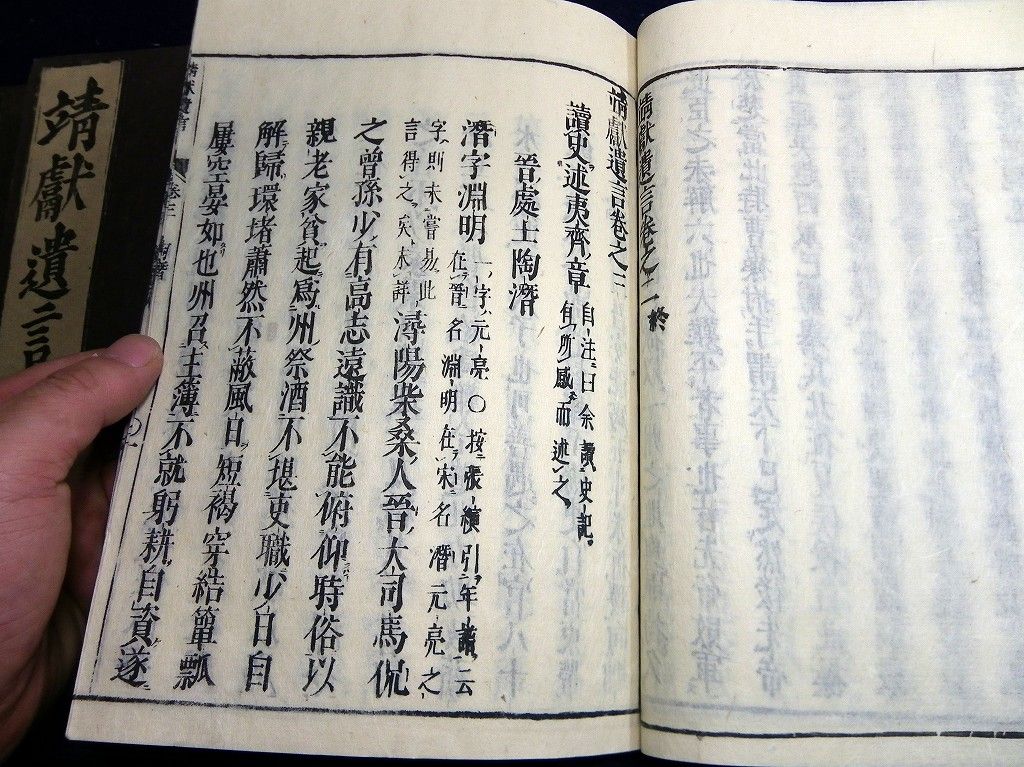 靖獻遺言卷之二終
靖獻遺言卷之三
讀史述夷齊章 自注曰余讀史記
有所感而述之
晉處士陶潛
潛字淵明 一字元亮○按張縯引年譜云
字則未嘗易此在晉名淵明在宋名潛元亮之
言得之矣未詳潯陽柴桑人晉大司馬侃
之曾孫少有高志遠識不能俯仰時俗以
親老家貧起爲州祭酒不堪吏職少日自
解歸環堵蕭然不蔽風日短褐穿結簞瓢
屢空晏如也州召主簿不就躬耕自資遂
靖獻遺言
卷三
靖獻遺言